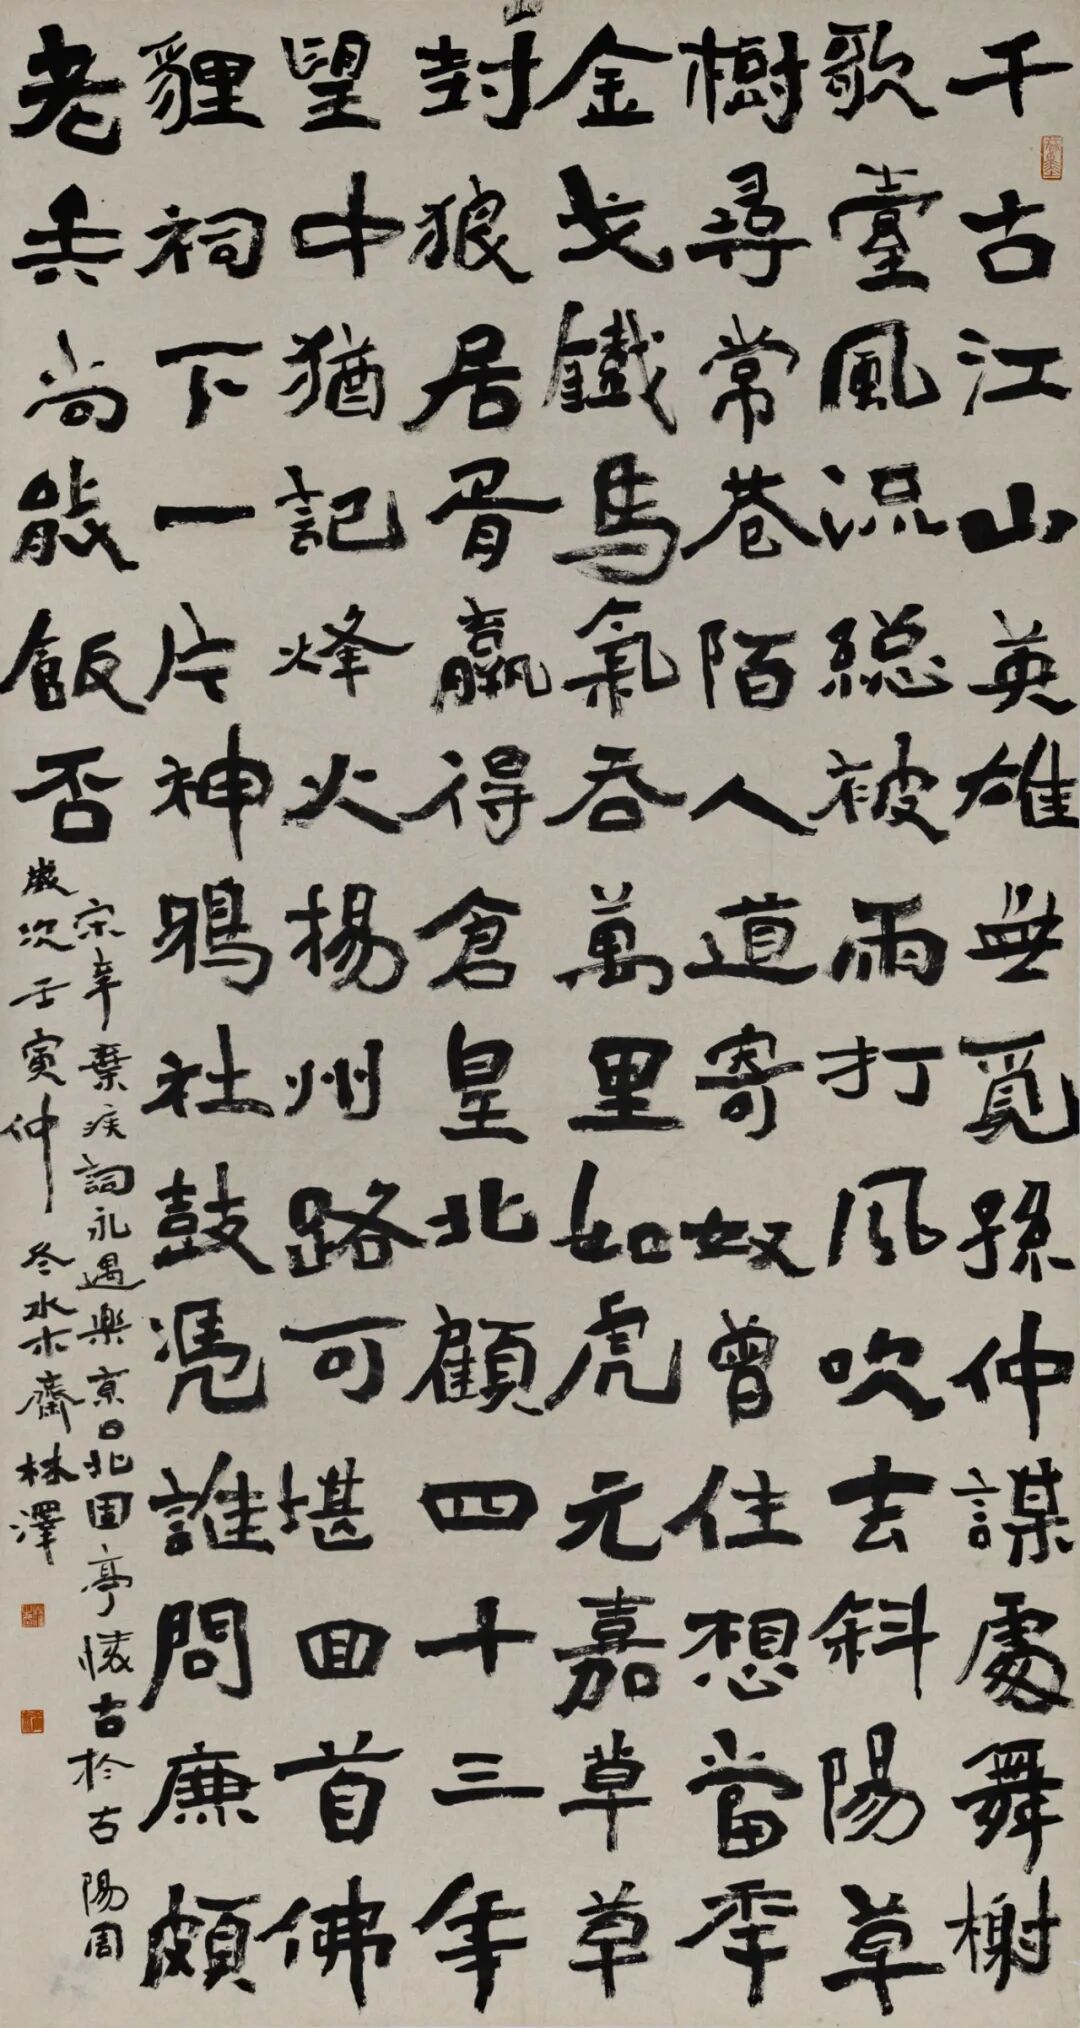 千古江山英雄無覓孫仲謀處舞榭
歌臺風流總被雨打風吹去斜陽草
樹尋常巷陌人道寄奴曾住想當年
金戈鐵馬氣吞萬里如虎元嘉草草
封狼居胥贏得倉皇北顧四十三年
望中猶記烽火揚州路可堪回首佛
貍祠下一片神鴉社鼓憑誰問廉頗
老兵尚能飯否
宋辛棄疾詞永遇樂京口北固亭懷古於古陽周
歲次壬寅仲冬水木齋林澤